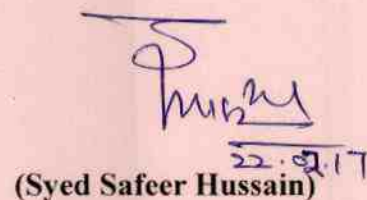 22.02.17
(Syed Safeer Hussain)